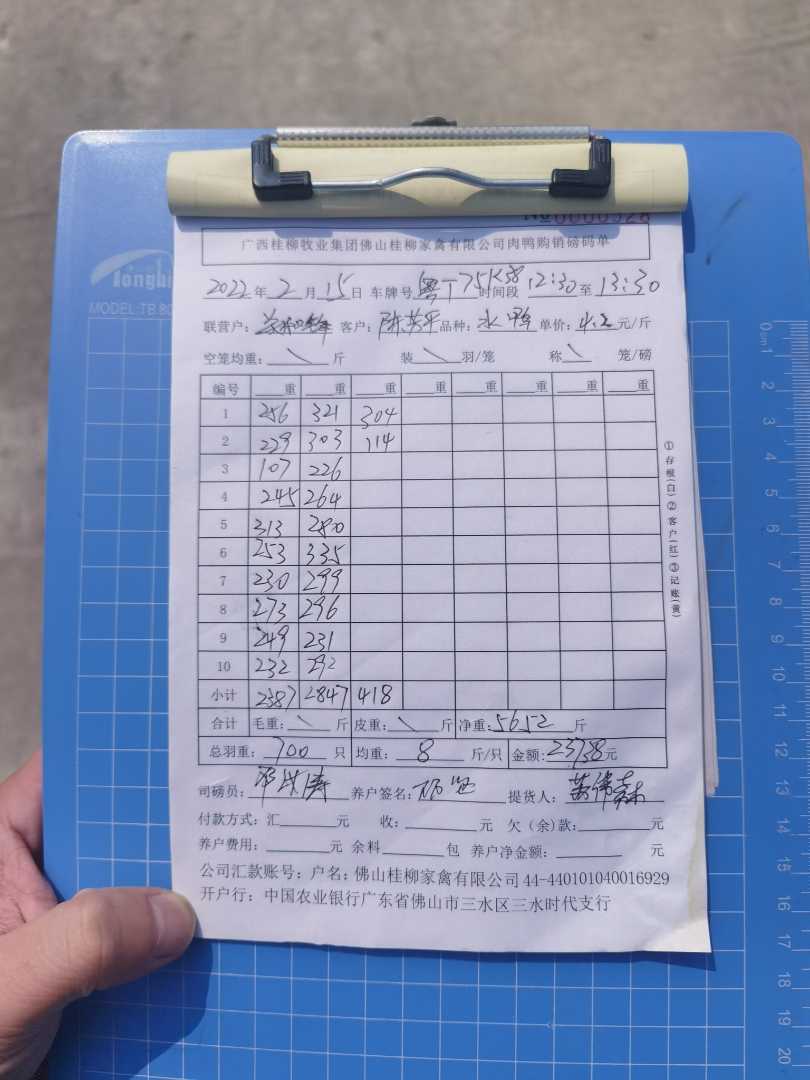 №0000528
广西桂柳牧业集团佛山桂柳家禽有限公司肉鸭购销磅码单
2022年2月15日 车牌号 粤T75K38 时间段 12:30至13:30
联营户: 客户: 陈英平 品种: 水鸭 单价: 4.2元/斤
空笼均重: \ 斤 装 \ 羽/笼 称 \ 笼/磅
编号 重 重 重 重 重 重 重 重
1 256 321 304
2 229 303 114
3 107 226
4 245 264
5 313 280
6 253 335
7 230 299
8 273 296
9 249 231
10 232 292
小计 2387 2847 418
合计 毛重: \ 斤 皮重: \ 斤 净重: 5652 斤
总羽重: 700 只 均重: 8 斤/只 金额: 23738元
司磅员: 养户签名: 提货人: 黄伟森
付款方式: 汇 元 收: 元 欠(余)款: 元
养户费用: 元 余料 包 养户净金额: 元
公司汇款账号: 户名: 佛山桂柳家禽有限公司 44-440101040016929
开户行: 中国农业银行广东省佛山市三水区三水时代支行
①存根(白)②客户(红)③记账(黄)
MODEL:TB.80
0 1 2 3 4 5 6 7 8 9 10 11 12 13 14 15 16 17 18 19 20